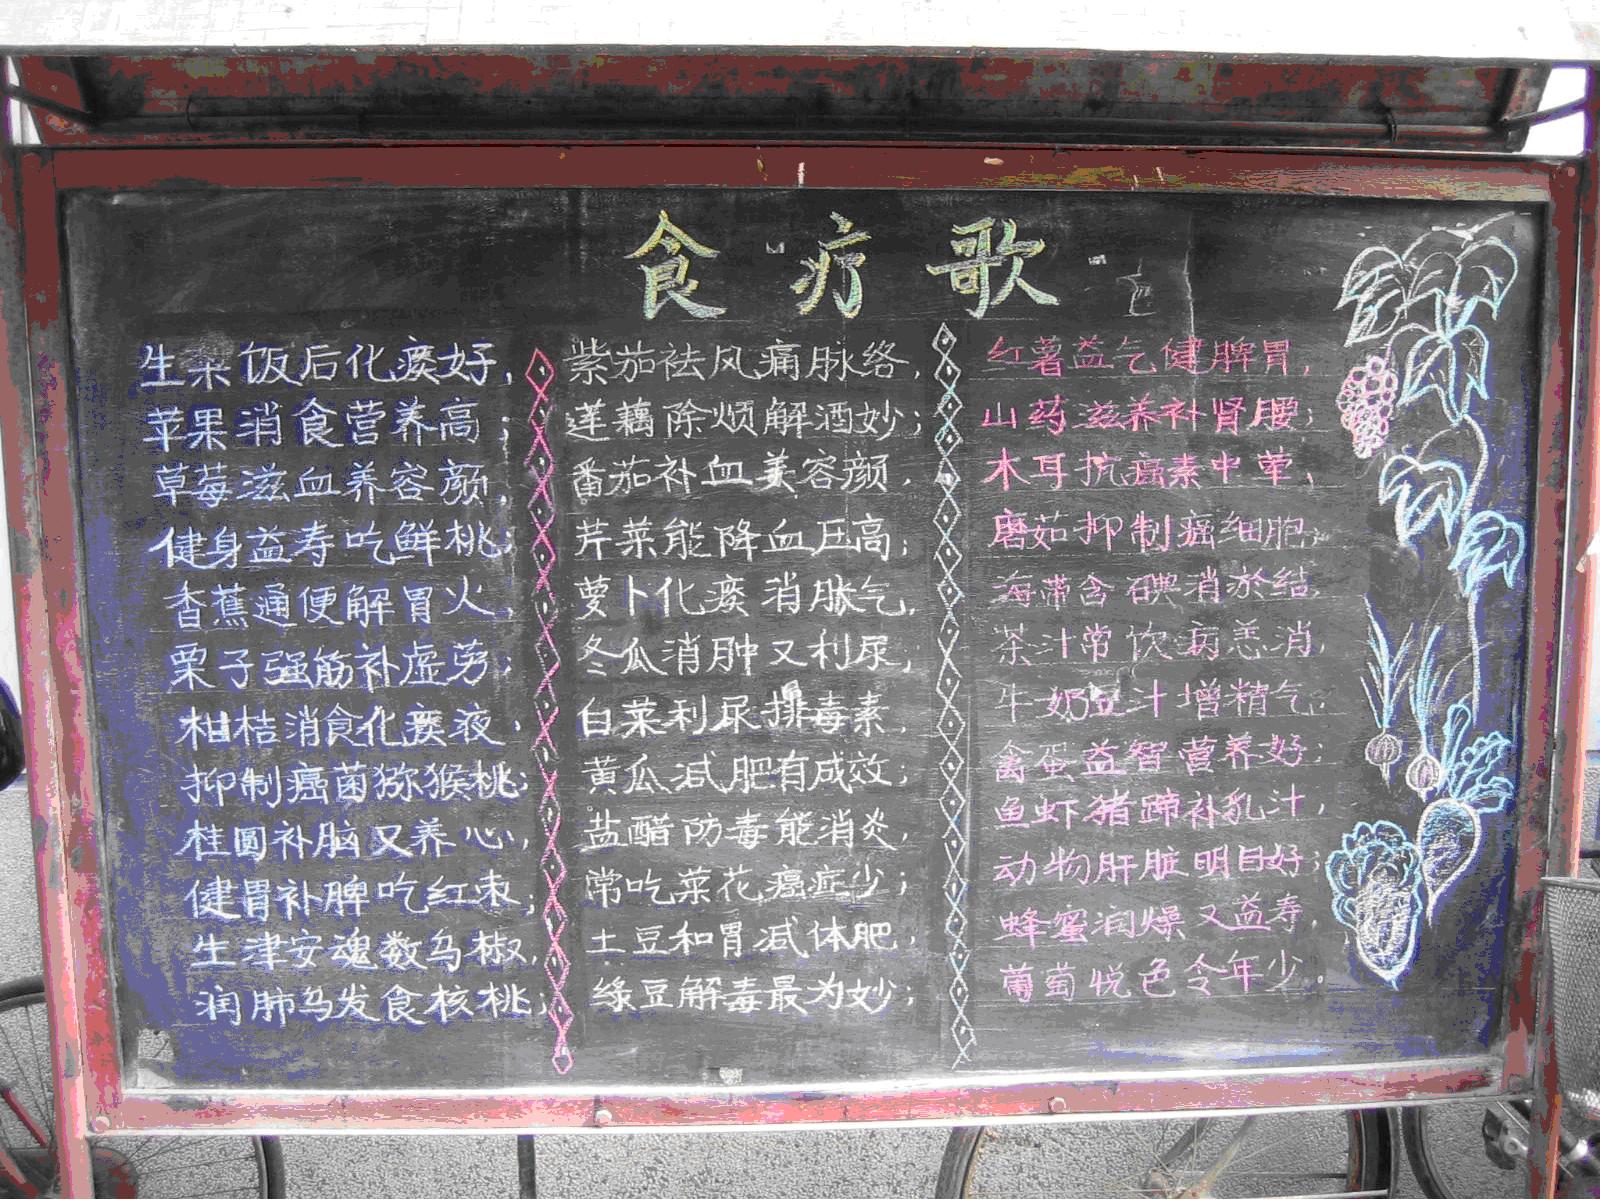 食疗歌
生果饭后化痰好,
苹果消食营养高;
草莓滋血养容颜,
健身益寿吃鲜桃;
香蕉通便解胃火,
栗子强筋补虚劳;
柑桔消食化痰液,
抑制癌菌猕猴桃;
桂圆补脑又养心,
健胃补脾吃红枣;
生津安魂数乌椒,
润肺乌发食核桃;
紫茄祛风痛脉络,
莲藕除烦解酒妙;
番茄补血美容颜,
芹菜能降血压高;
萝卜化痰消胀气,
冬瓜消肿又利尿;
白菜利尿排毒素,
黄瓜减肥有成效;
盐醋防毒能消炎,
常吃菜花癌症少;
土豆和胃减体肥,
绿豆解毒最为妙;
红薯益气健脾胃,
山药滋养补肾腰;
木耳抗癌素中荤,
磨茹抑制癌细胞;
海带含碘消淤结,
茶汁常饮病恙消,
牛奶豆汁增精气,
禽蛋益智营养好;
鱼虾猪蹄补乳汁,
动物肝脏明目好;
蜂蜜润燥又益寿,
葡萄悦色令年少。